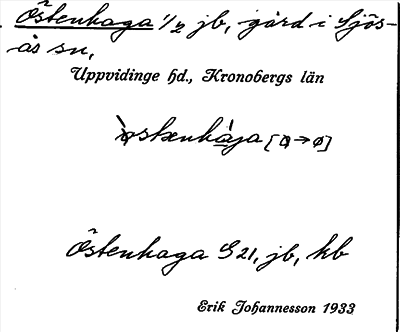 Östenhaga 1/2 jb, gård i Sjös-
ås sn,
Uppvidinge hd., Kronobergs län
Östenhaga G21, jb, kb
Erik Johannesson 1933